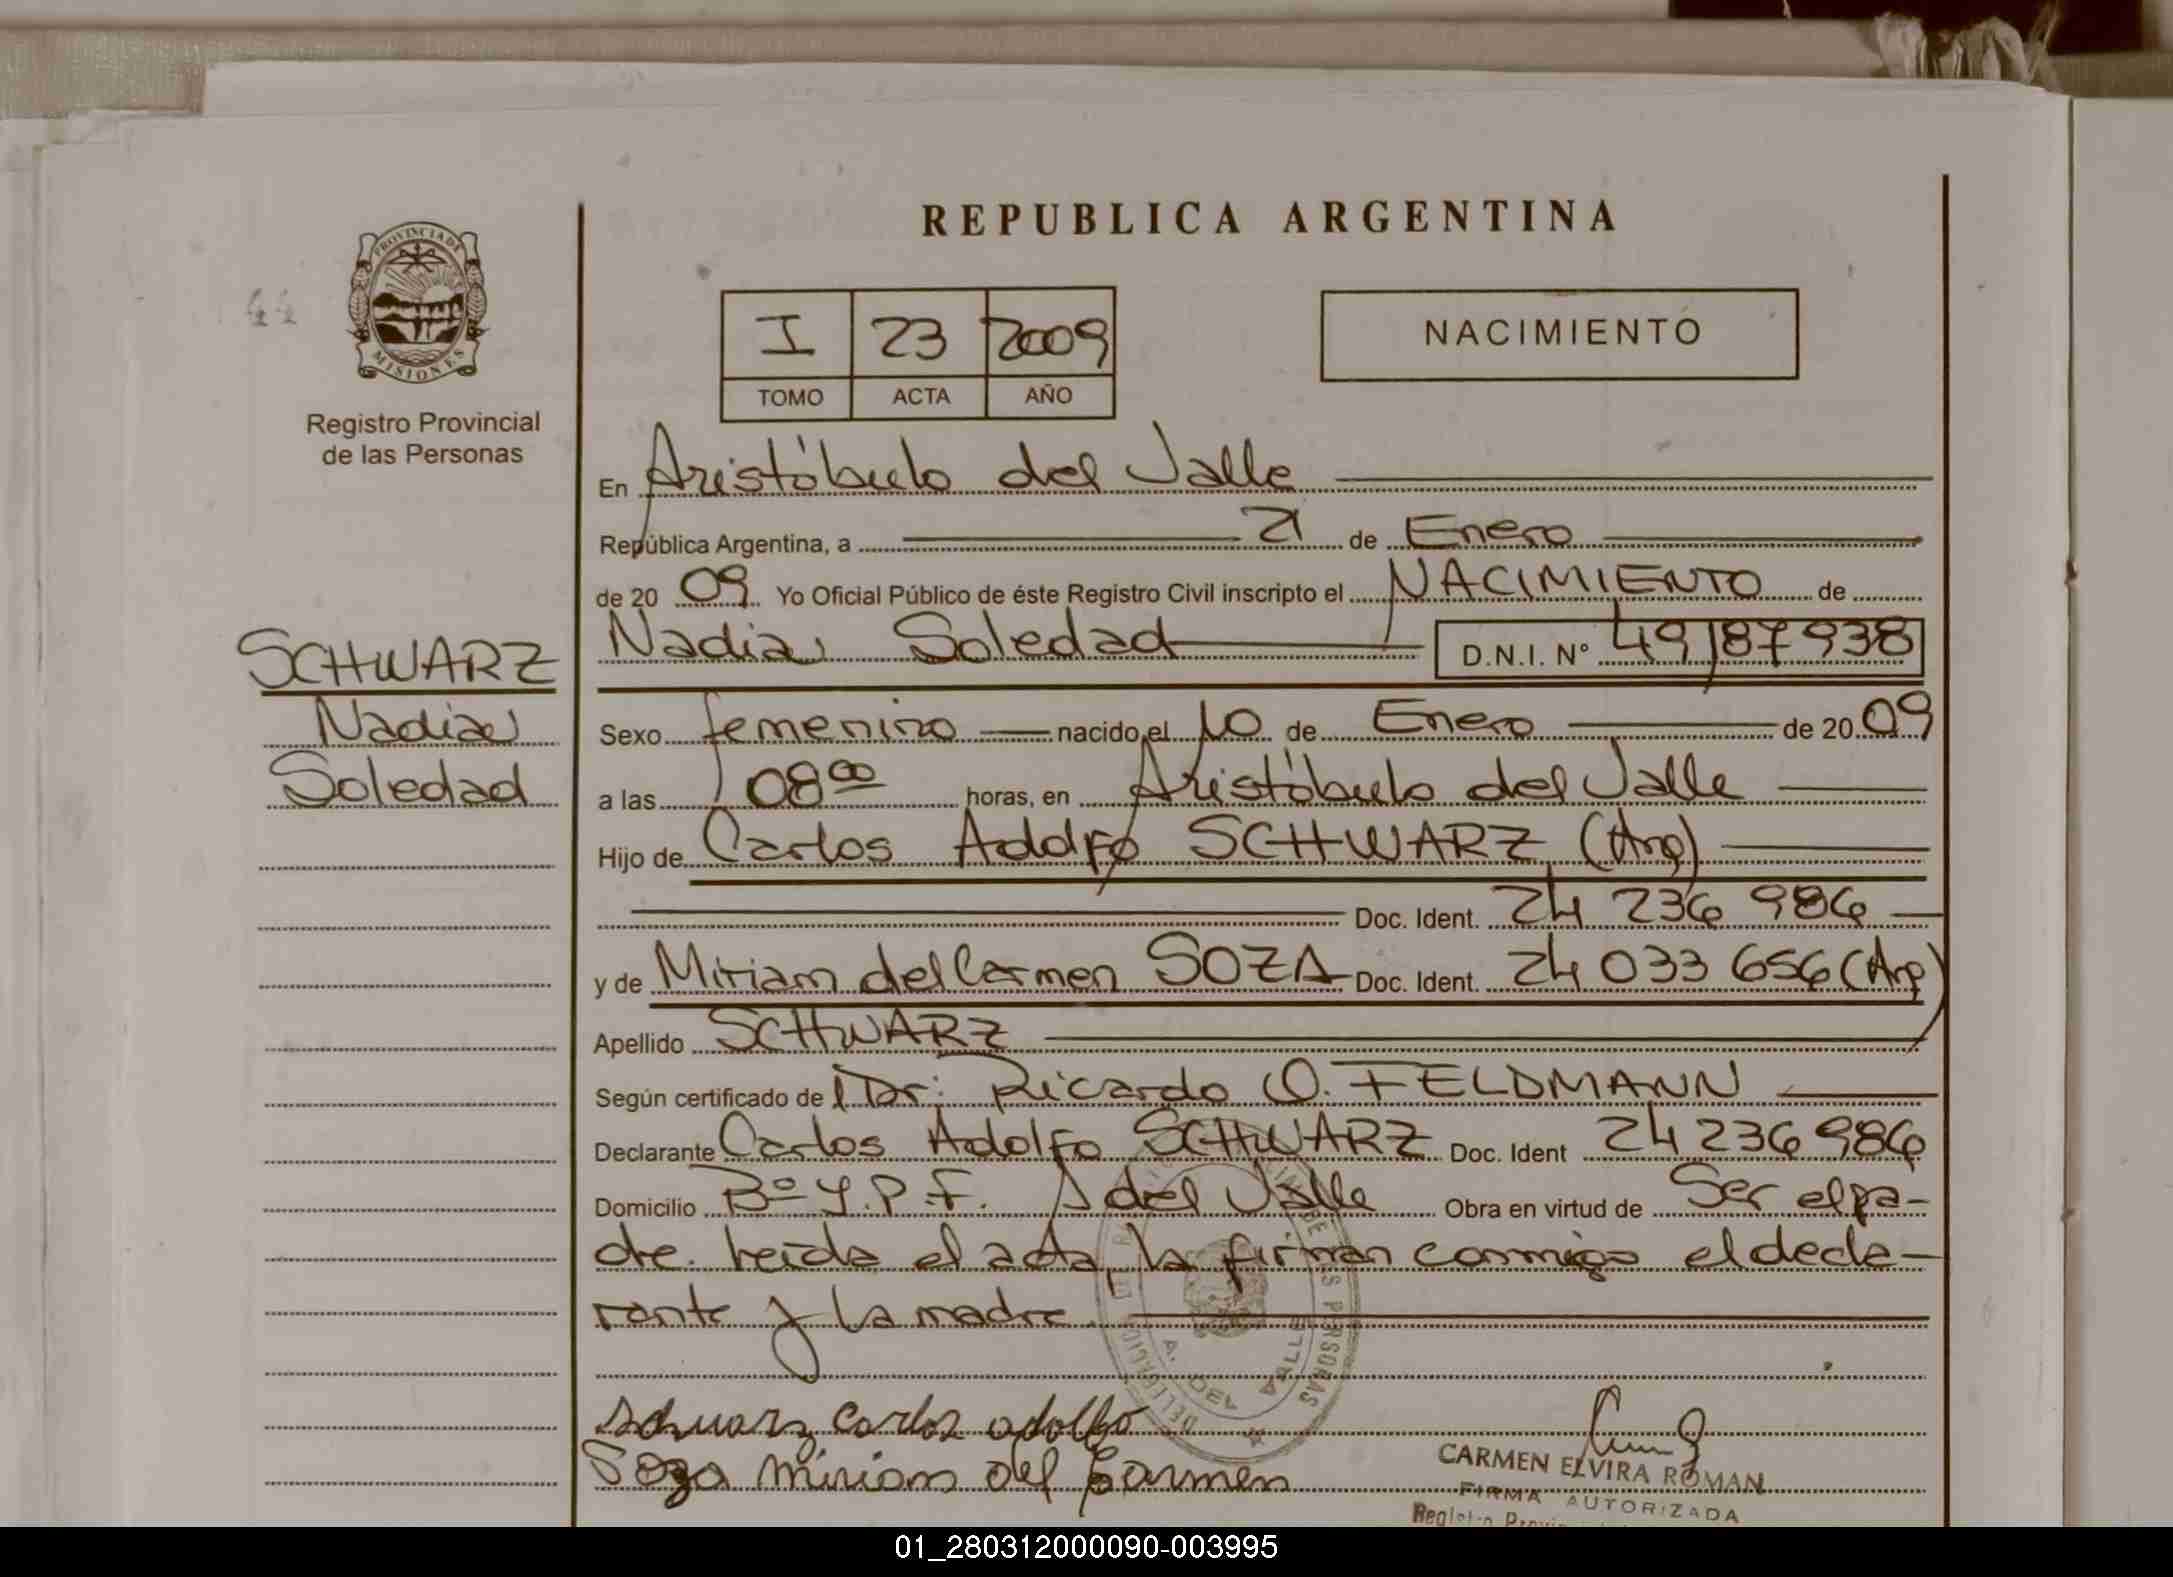 REPUBLICA ARGENTINA
PROVINCIA DE
MISIONES
44
Registro Provincial
de las Personas
I 23 2009
TOMO ACTA AÑO
NACIMIENTO
En Aristóbulo del Valle
República Argentina, a 21 de Enero
de 20 09 Yo Oficial Público de éste Registro Civil inscripto el NACIMIENTO de
Nadia Soledad D.N.I. N° 49187938
SCHWARZ
Nadia
Soledad
Sexo femenino nacido el 10 de Enero de 20 09
a las 08 00 horas, en Aristóbulo del Valle
Hijo de Carlos Adolfo SCHWARZ (Arg)
Doc. Ident. 24 236 986
y de Miriam del Carmen SOZA Doc. Ident. 24 033 656 (Arg)
Apellido SCHWARZ
Según certificado de Dr: Ricardo O. FELDMANN
Declarante Carlos Adolfo SCHWARZ Doc. Ident 24 236 986
Domicilio Bº Y.P.F. A del Valle Obra en virtud de Ser el pa-
dre. Leída el acta, la firman conmigo el decla-
rante y la madre.
Schwarz Carlos adolfo
Soza Miriam del Carmen
CARMEN ELVIRA ROMAN
FIRMA AUTORIZADA
01_280312000090-003995